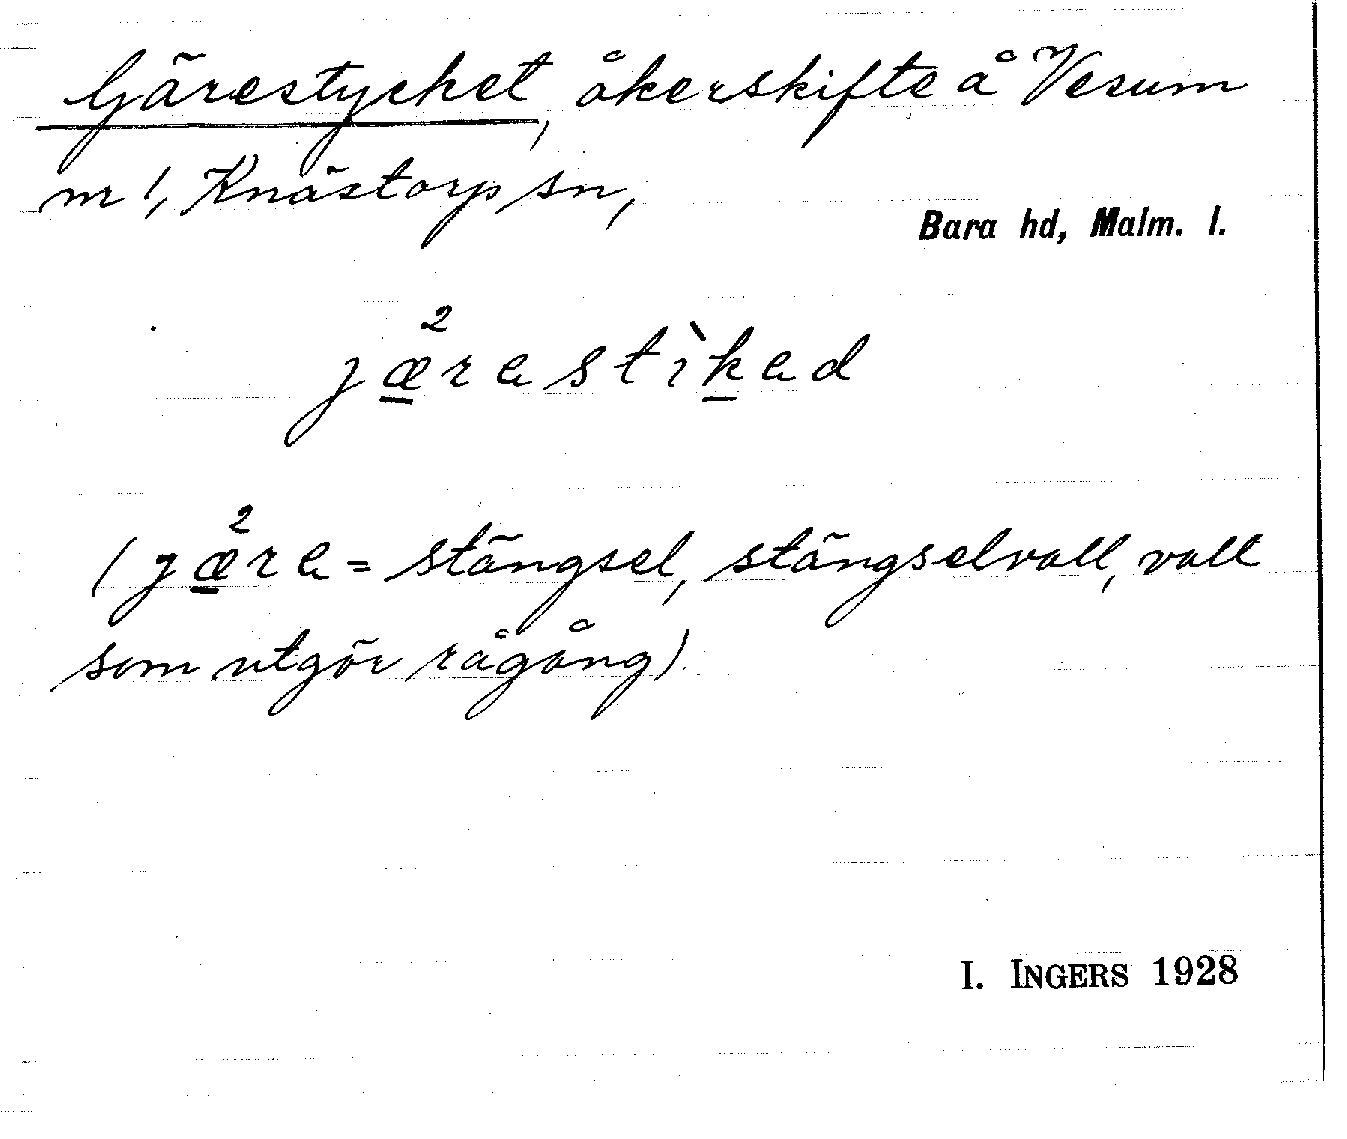 Gärestycket, åkerskifte å Vesum
nr 1, Knästorp sn,
Bara hd, Malm. l.
j²æ̱rɐstìḵɐd
(j²æ̱rɐ = stängsel, stängselvall, vall
som utgör rågång)
I. INGERS 1928